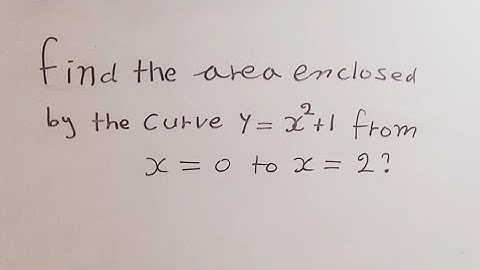 find the area enclosed
by the curve y = x²+1 from
x = 0 to x = 2?